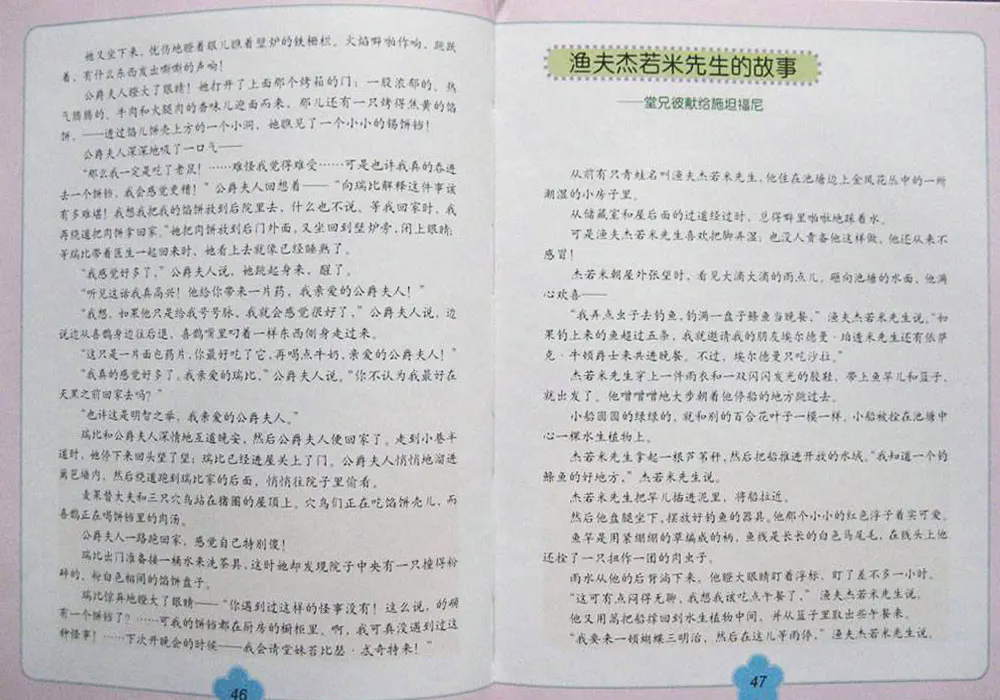 她又坐下来，忧伤地瞪着眼儿瞧着壁炉的铁栅栏。火焰噼啪作响，跳跃
着，有什么东西发出嘶嘶的声响！
公爵夫人瞪大了眼睛！她打开了上面那个烤箱的门：一股浓郁的、热
气腾腾的、牛肉和火腿肉的香味儿迎面而来，那儿还有一只烤得焦黄的馅
饼，——透过馅儿饼壳上方的一个小洞，她瞧见了一个小小的锡饼铛！
公爵夫人深深地吸了一口气——
“那么我一定是吃了老鼠！……难怪我觉得难受……可是也许我真的吞进
去一个饼铛，我会感觉更糟！”公爵夫人回想着——“向瑞比解释这件事该
有多难堪！我想我把我的馅饼放到后院里去，什么也不说。等我回家时，我
再绕道把肉饼拿回家。”她把肉饼放到后门外面，又坐回到壁炉旁，闭上眼睛；
等瑞比带着医生一起回来时，她看上去就像已经睡熟了。
“我感觉好多了，”公爵夫人说，她跳起身来，醒了。
“听见这话我真高兴！他给你带来一片药，我亲爱的公爵夫人！”
“我想，如果他只是给我号号脉，我就会感觉很好了，”公爵夫人说，边
说边从喜鹊身边往后退，喜鹊嘴里叼着一样东西侧身走过来。
“这只是一片面包药片，你最好吃了它，再喝点牛奶，亲爱的公爵夫人！”
“我真的感觉好多了，我亲爱的瑞比，”公爵夫人说。“你不认为我最好在
天黑之前回家去吗？”
“也许这是明智之举，我亲爱的公爵夫人。”
瑞比和公爵夫人深情地互道晚安，然后公爵夫人便回家了。走到小巷半
道时，她停下来回头望了望；瑞比已经进屋关上了门。公爵夫人悄悄地溜进
篱笆墙内，然后绕道跑到瑞比家的后面，悄悄往院子里偷看。
麦莱替大夫和三只穴鸟站在猪圈的屋顶上。穴鸟们正在吃馅饼壳儿，而
喜鹊正在喝饼铛里的肉汤。
公爵夫人一路跑回家，感觉自己特别傻！
瑞比出门准备接一桶水来洗茶具，这时她却发现院子中央有一只撞得粉
碎的、粉白色相间的馅饼盘子。
瑞比惊异地瞪大了眼睛——“你遇到过这样的怪事没有！这么说，的确
有一个饼铛了？……可我的饼铛都在厨房的橱柜里。啊，我可真没遇到过这
种怪事！……下次开晚会的时候——我会请堂妹苔比瑟·忒奇特来！”
46
渔夫杰若米先生的故事
——堂兄彼献给施坦福尼
从前有只青蛙名叫渔夫杰若米先生，他住在池塘边上金凤花丛中的一所
潮湿的小房子里。
从储藏室和屋后面的过道经过时，总得噼里啪啦地踩着水。
可是渔夫杰若米先生喜欢把脚弄湿；也没人责备他这样做，他还从来不
感冒！
杰若米朝屋外张望时，看见大滴大滴的雨点儿，砸向池塘的水面，他满
心欢喜——
“我弄点虫子去钓鱼，钓满一盘子鲦鱼当晚餐，”渔夫杰若米先生说。“如
果钓上来的鱼超过五条，我就邀请我的朋友埃尔德曼·珀透米先生还有依萨
克·牛顿爵士来共进晚餐。不过，埃尔德曼只吃沙拉。”
杰若米先生穿上一件雨衣和一双闪闪发光的胶鞋，带上鱼竿儿和篮子，
就出发了。他噌噌噌地大步朝着他停船的地方跳过去。
小船圆圆的绿绿的，就和别的百合花叶子一模一样。小船被拴在池塘中
心一棵水生植物上。
杰若米先生拿起一根芦苇秆，然后把船推进开放的水域。“我知道一个钓
鲦鱼的好地方，”杰若米先生说。
杰若米先生把竿儿插进泥里，将船拉近。
然后他盘腿坐下，摆放好钓鱼的器具。他那个小小的红色浮子着实可爱。
鱼竿是用紧绷绷的草编成的柄，鱼线是长长的白色马尾毛，在线头上他
还拴了一只扭作一团的肉虫子。
雨水从他的后背淌下来，他瞪大眼睛盯着浮标，盯了差不多一小时。
“这可有点闷得无聊，我想我该吃点午餐了，”渔夫杰若米先生说。
他又用篙把船撑回到水生植物中间，并从篮子里取出些午餐来。
“我要来一顿蝴蝶三明治，然后在这儿等雨停，”渔夫杰若米先生说。
47